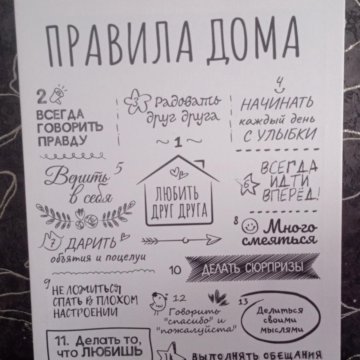 ПРАВИЛА ДОМА
2
ВСЕГДА
ГОВОРИТЬ
ПРАВДУ
3
Радовать
друг друга
4
НАЧИНАТЬ
каждый день
С УЛЫБКИ
~ 1 ~
ЛЮБИТЬ
ДРУГ ДРУГА
5
Верить
в себя
6
ВСЕГДА
ИДТИ
ВПЕРЁД!
7
ДАРИТЬ
объятия и поцелуи
8
Много
смеяться
9
НЕ ЛОЖИТЬСЯ
СПАТЬ В ПЛОХОМ
НАСТРОЕНИИ
10
ДЕЛАТЬ СЮРПРИЗЫ
12
Говорить
"спасибо" и
"пожалуйста"
13
Делиться
своими
мыслями
11. Делать то,
что ЛЮБИШЬ
ВЫПОЛНЯТЬ ОБЕЩАНИЯ